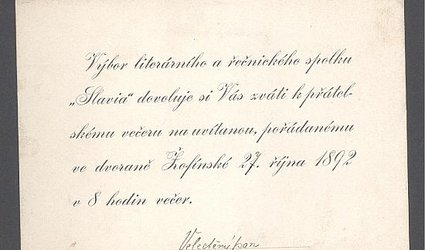 Výbor literárního a řečnického spolku
„Slavia“ dovoluje si Vás zváti k přátel-
skému večeru na uvítanou, pořádanému
ve dvoraně Žofínské 27. října 1892
v 8 hodin večer.
Velectěný pan